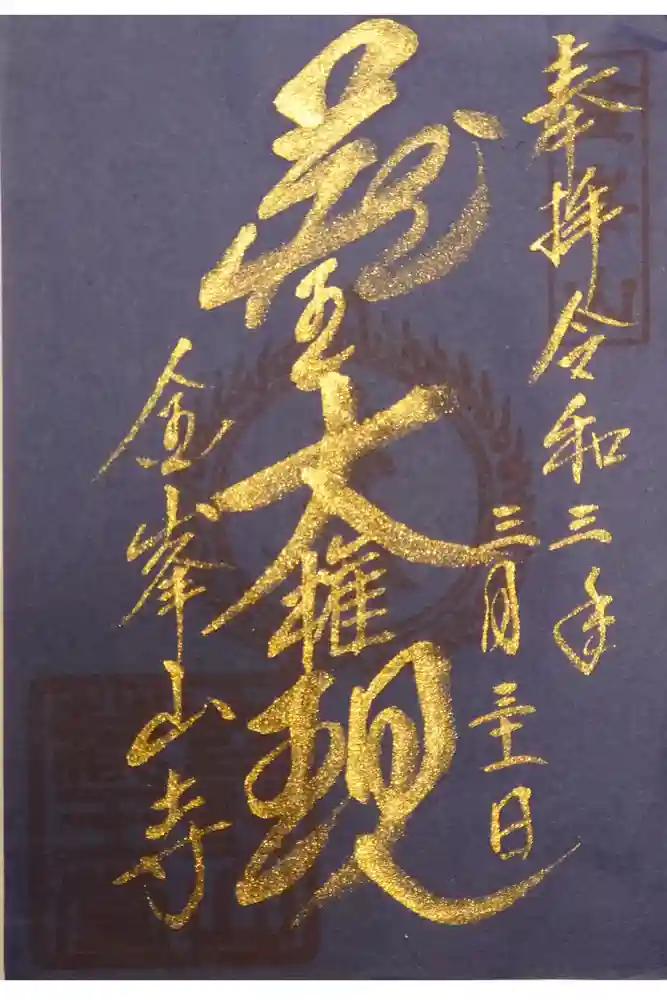 奉拝 令和三年
三月三十一日
蔵王大権現
金峯山寺